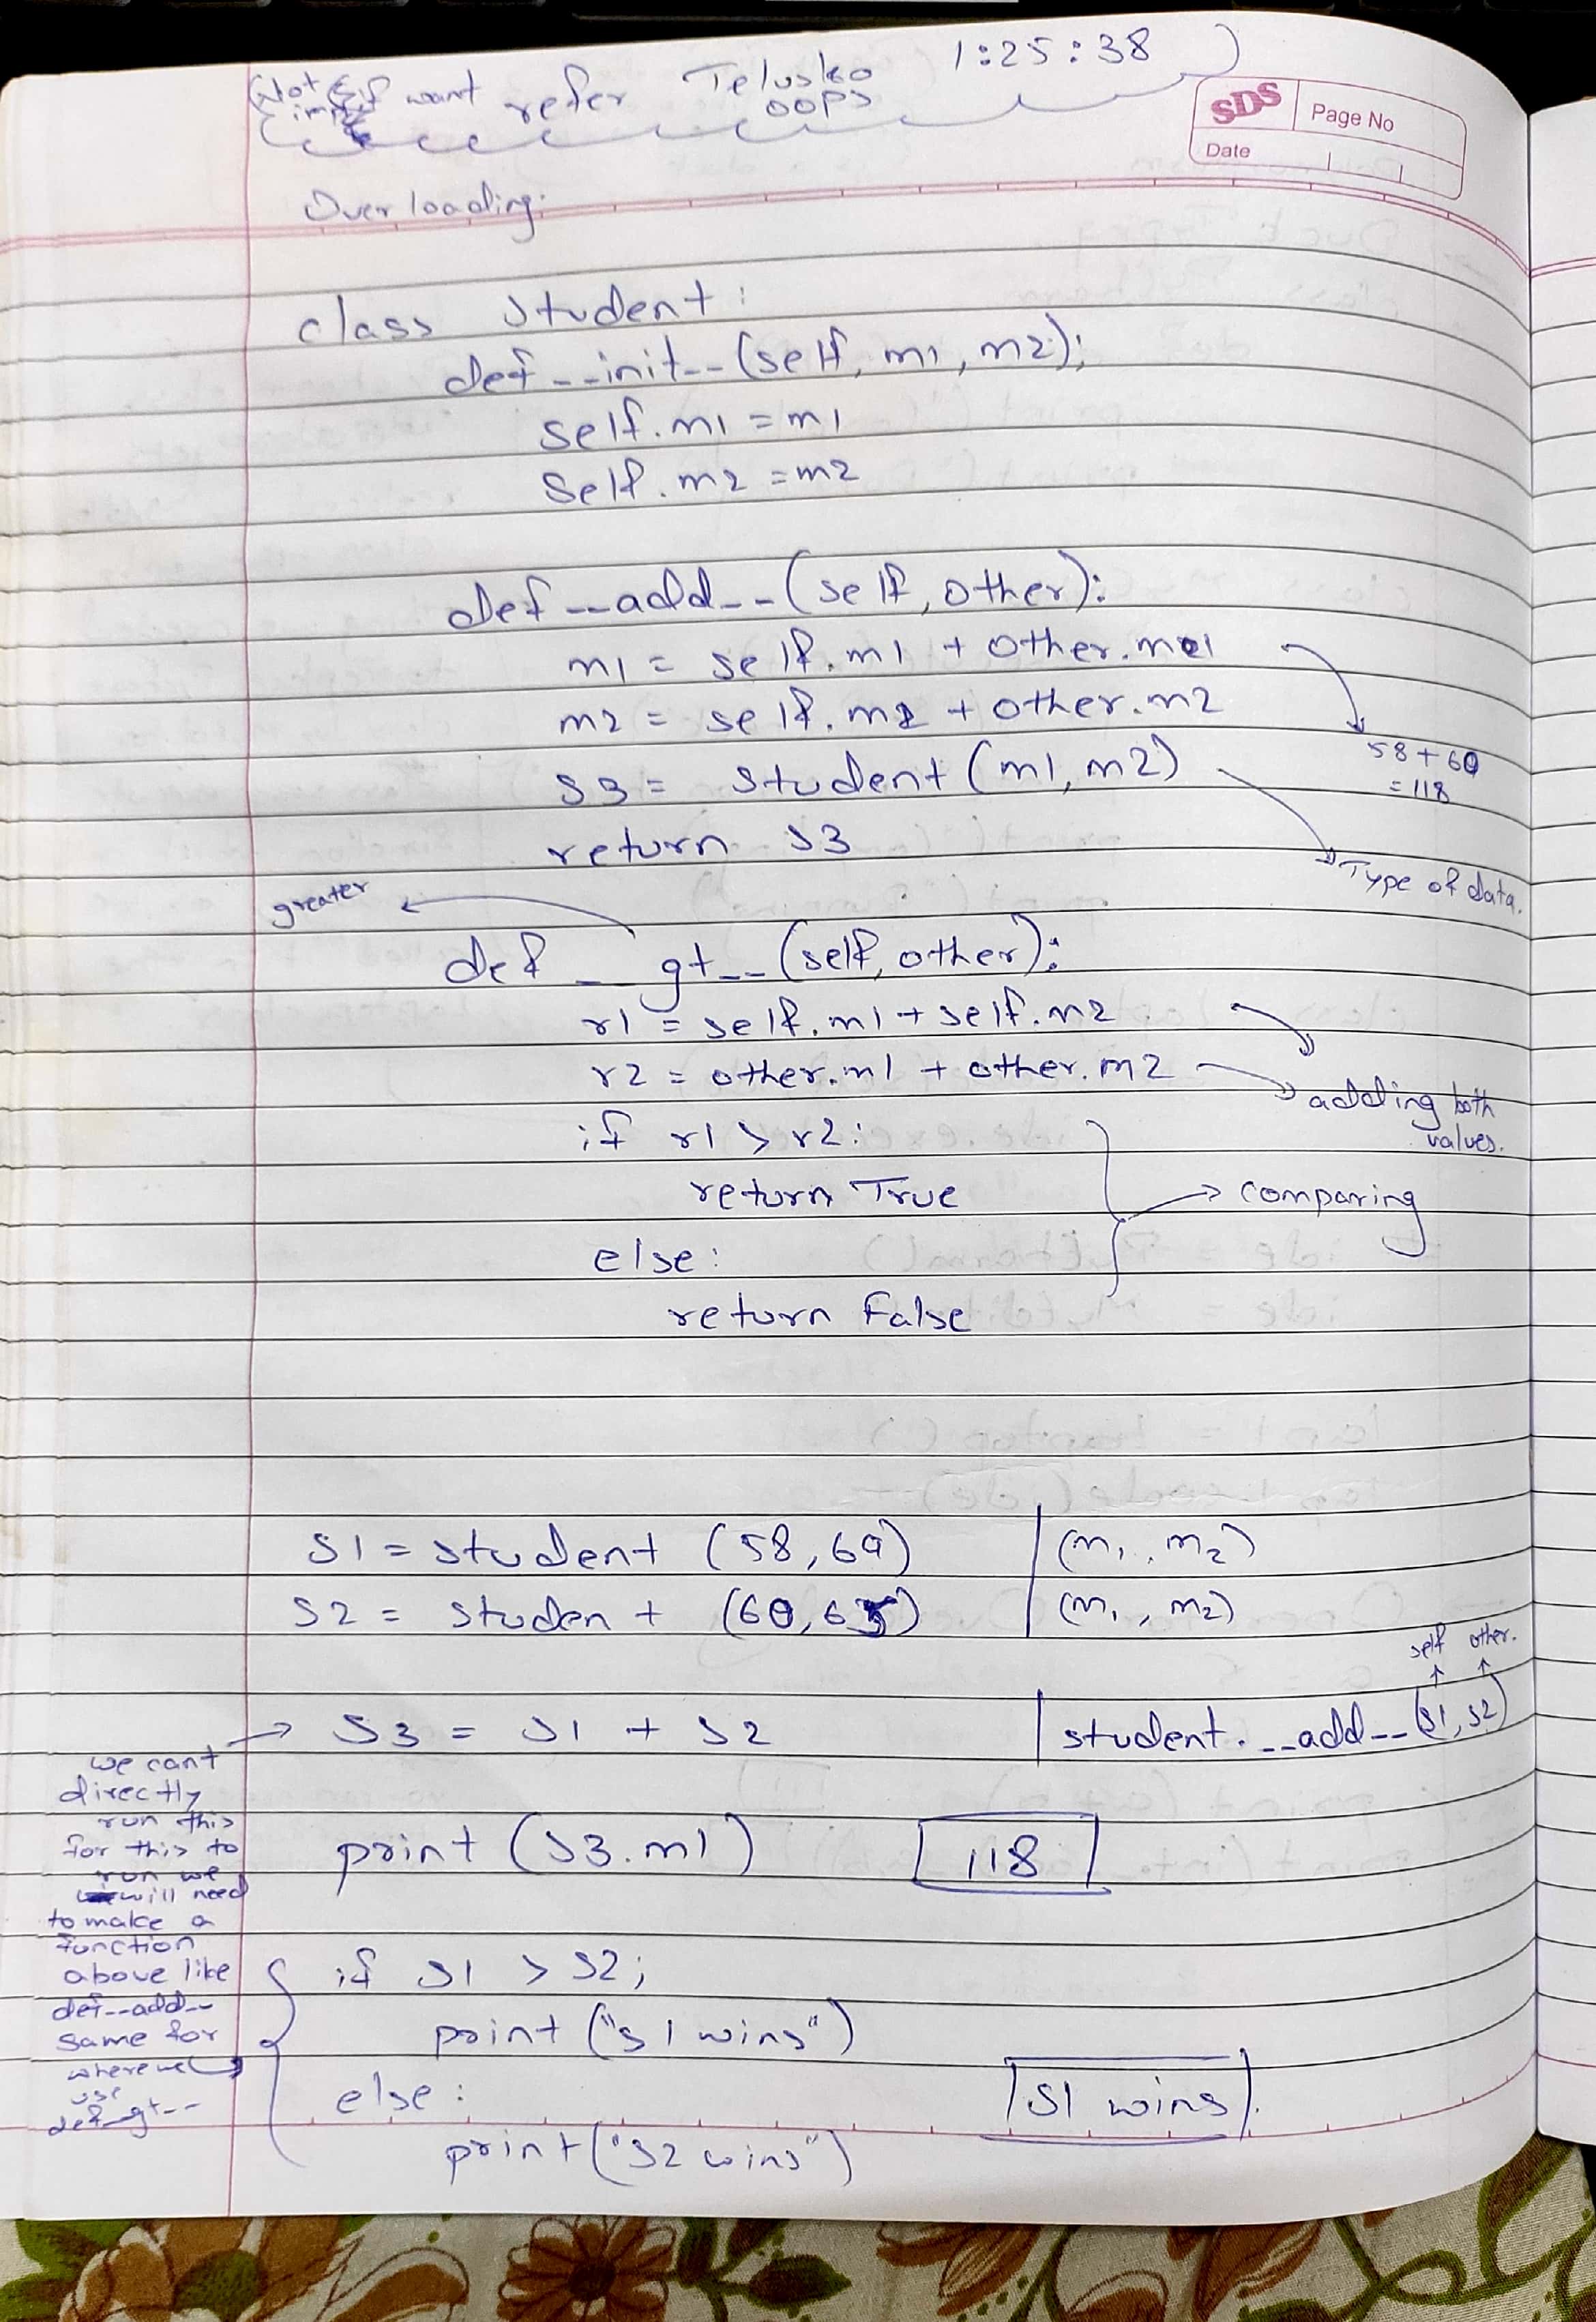 (Not imp if want refer Telusko oops 1:25:38)
SDS Page No
Date
Overloading:
class Student:
def __init__(self, m1, m2):
self.m1 = m1
self.m2 = m2
def __add__(self, other):
m1 = self.m1 + other.m1
m2 = self.m2 + other.m2
58+60
=118
s3 = student (m1, m2)
return s3
Type of data.
greater
def __gt__(self, other):
r1 = self.m1 + self.m2
r2 = other.m1 + other.m2
adding both
values.
if r1 > r2:
return True
comparing
else:
return False
S1 = student (58, 69) (m1, m2)
S2 = student (60, 65) (m1, m2)
self other.
S3 = S1 + S2 student.__add__(S1, S2)
we cant
directly
run this
for this to
run we
will need
to make a
function
above like
def __add__
same for
where we
use
def_gt__
print (S3.m1) 118
if S1 > S2;
print ("S1 wins")
else: S1 wins.
print("S2 wins")